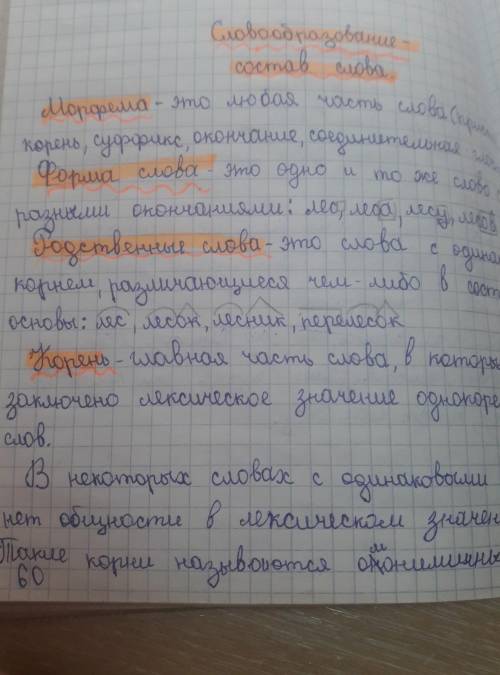 Словообразование -
состав слова.
Морфема - это любая часть слова
корень, суффикс, окончание, соединительная
Форма слова - это одно и то же слово
разными окончаниями: лес, леса, лесу,
Родственные слова - это слова с
корнем, различающиеся чем-либо в
основы: лес, лесок, лесник, перелесок
Корень - главная часть слова, в
заключено лексическое значение
слов.
В некоторых словах с одинаковыми
нет общности в лексическом
Такие корни называются
60